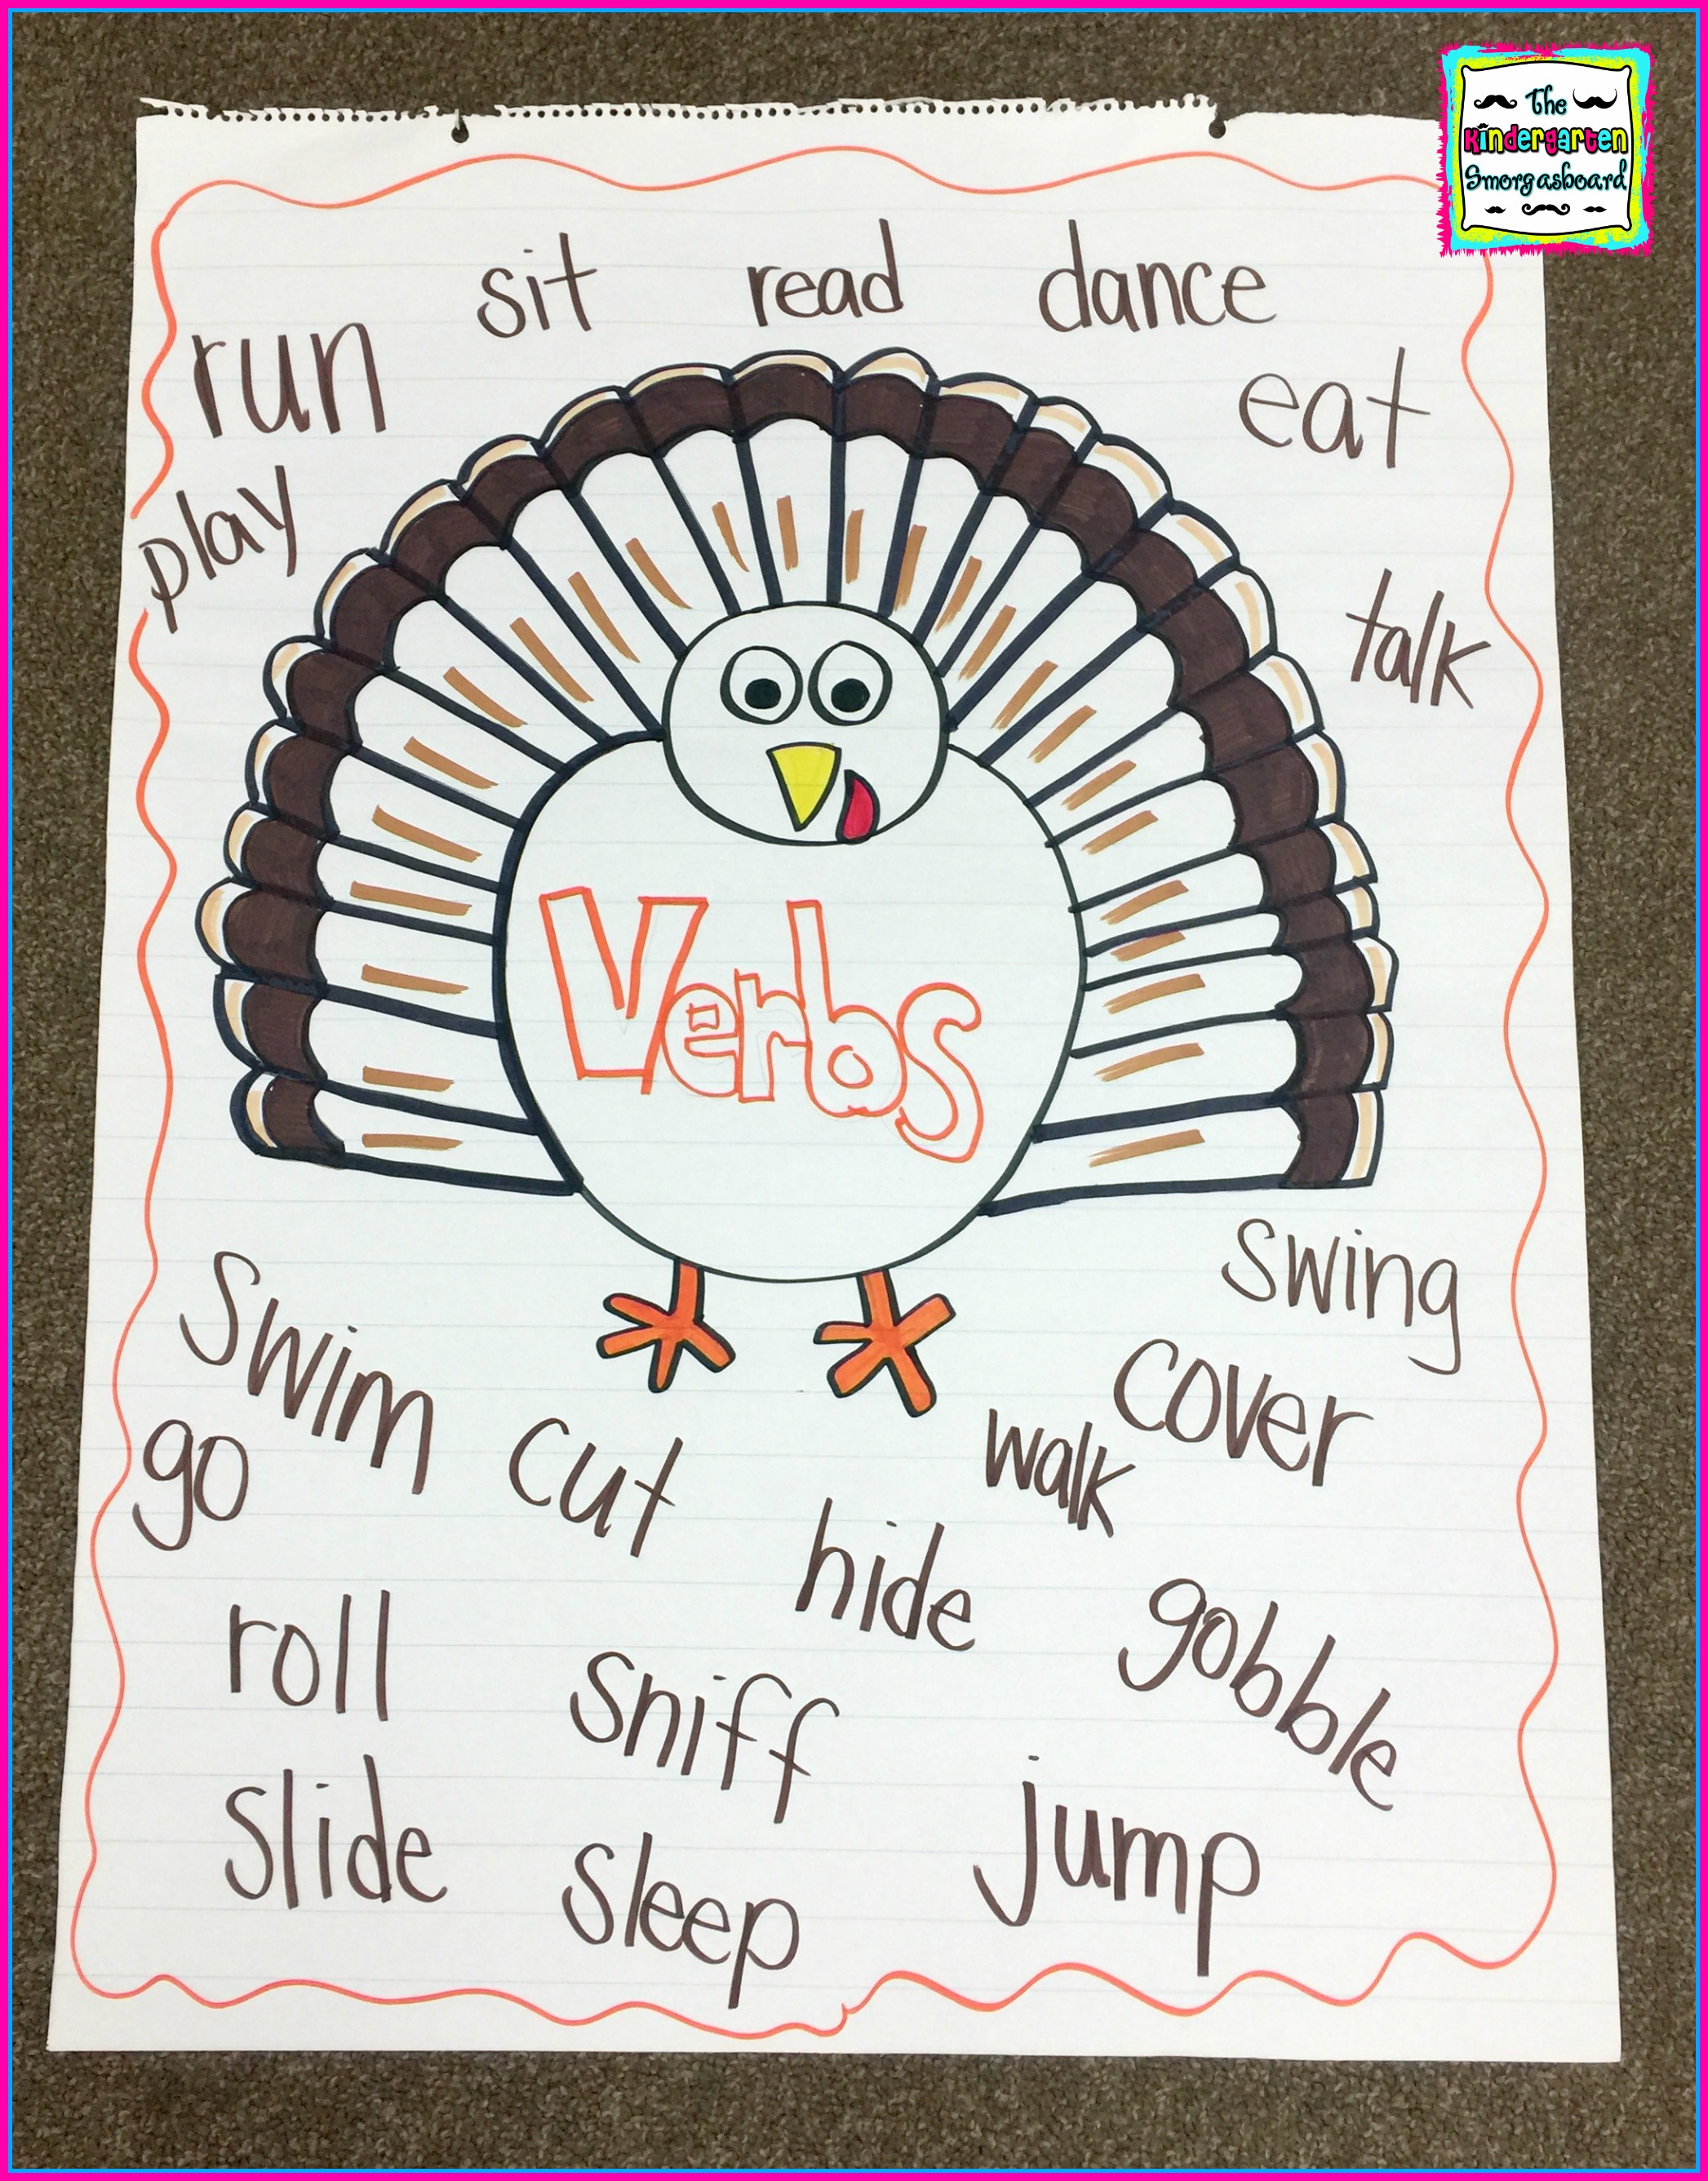 The
Kindergarten
Smorgasboard
sit read dance
run
eat
play
talk
Verbs
swing
swim
cover
go
cut
walk
hide
roll
gobble
sniff
slide
jump
sleep